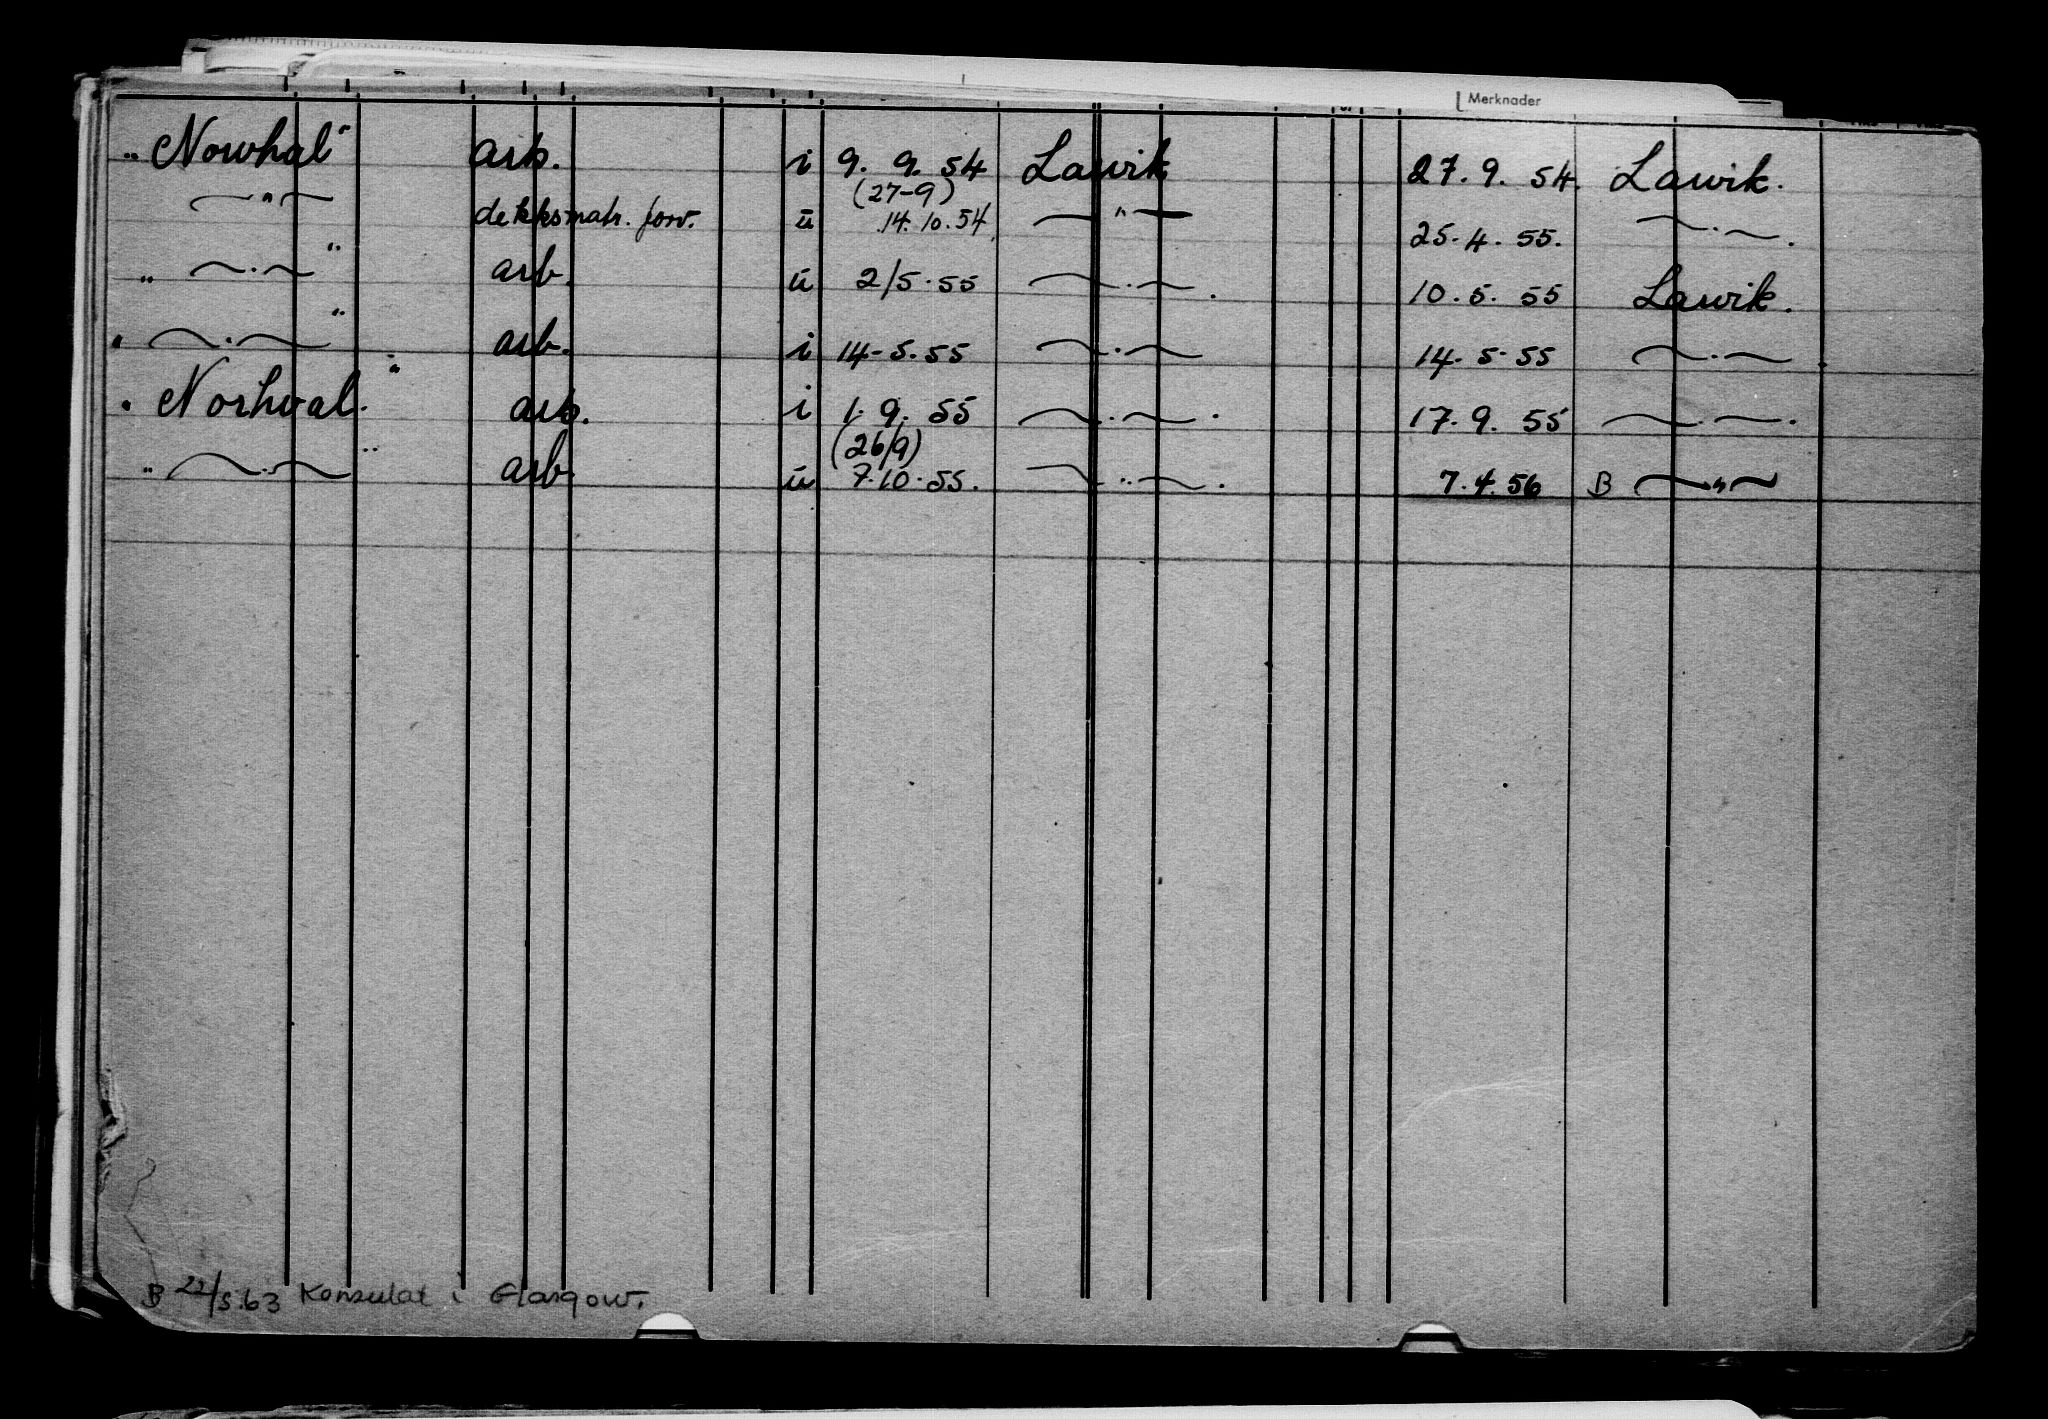 Merknader
„Norvhal" arb. i 9. 9. 54 Larvik 27. 9. 54. Larvik.
—"— dekksmatr. forv. u (27-9) 14.10.54 —"— 25. 4. 55. —"—.
„ —"— " arb. u 2/5.55 —"—. 10. 5. 55 Larvik.
„ —"— " arb. i 14-5.55 —"— 14. 5. 55 —"—
„Norhval." arb. i 1. 9. 55 —"—. 17. 9. 55 —"—.
„ —"— " arb u (26/9) 7.10.55. —"—. 7. 4. 56 B —"—
B 22/5.63 Konsulat i Glasgow.